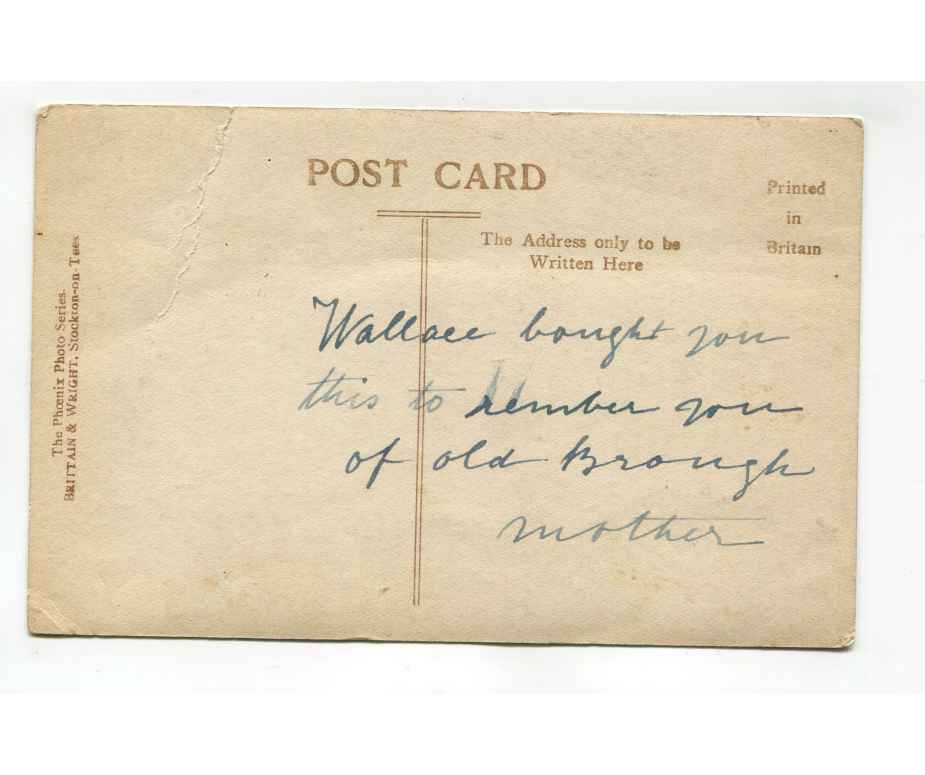 POST CARD
Printed
in
Britain
The Address only to be
Written Here
The Phœnix Photo Series.
BRITTAIN & WRIGHT, Stockton-on-Tees
Wallace bought you
this to rember you
of old Brough
mother